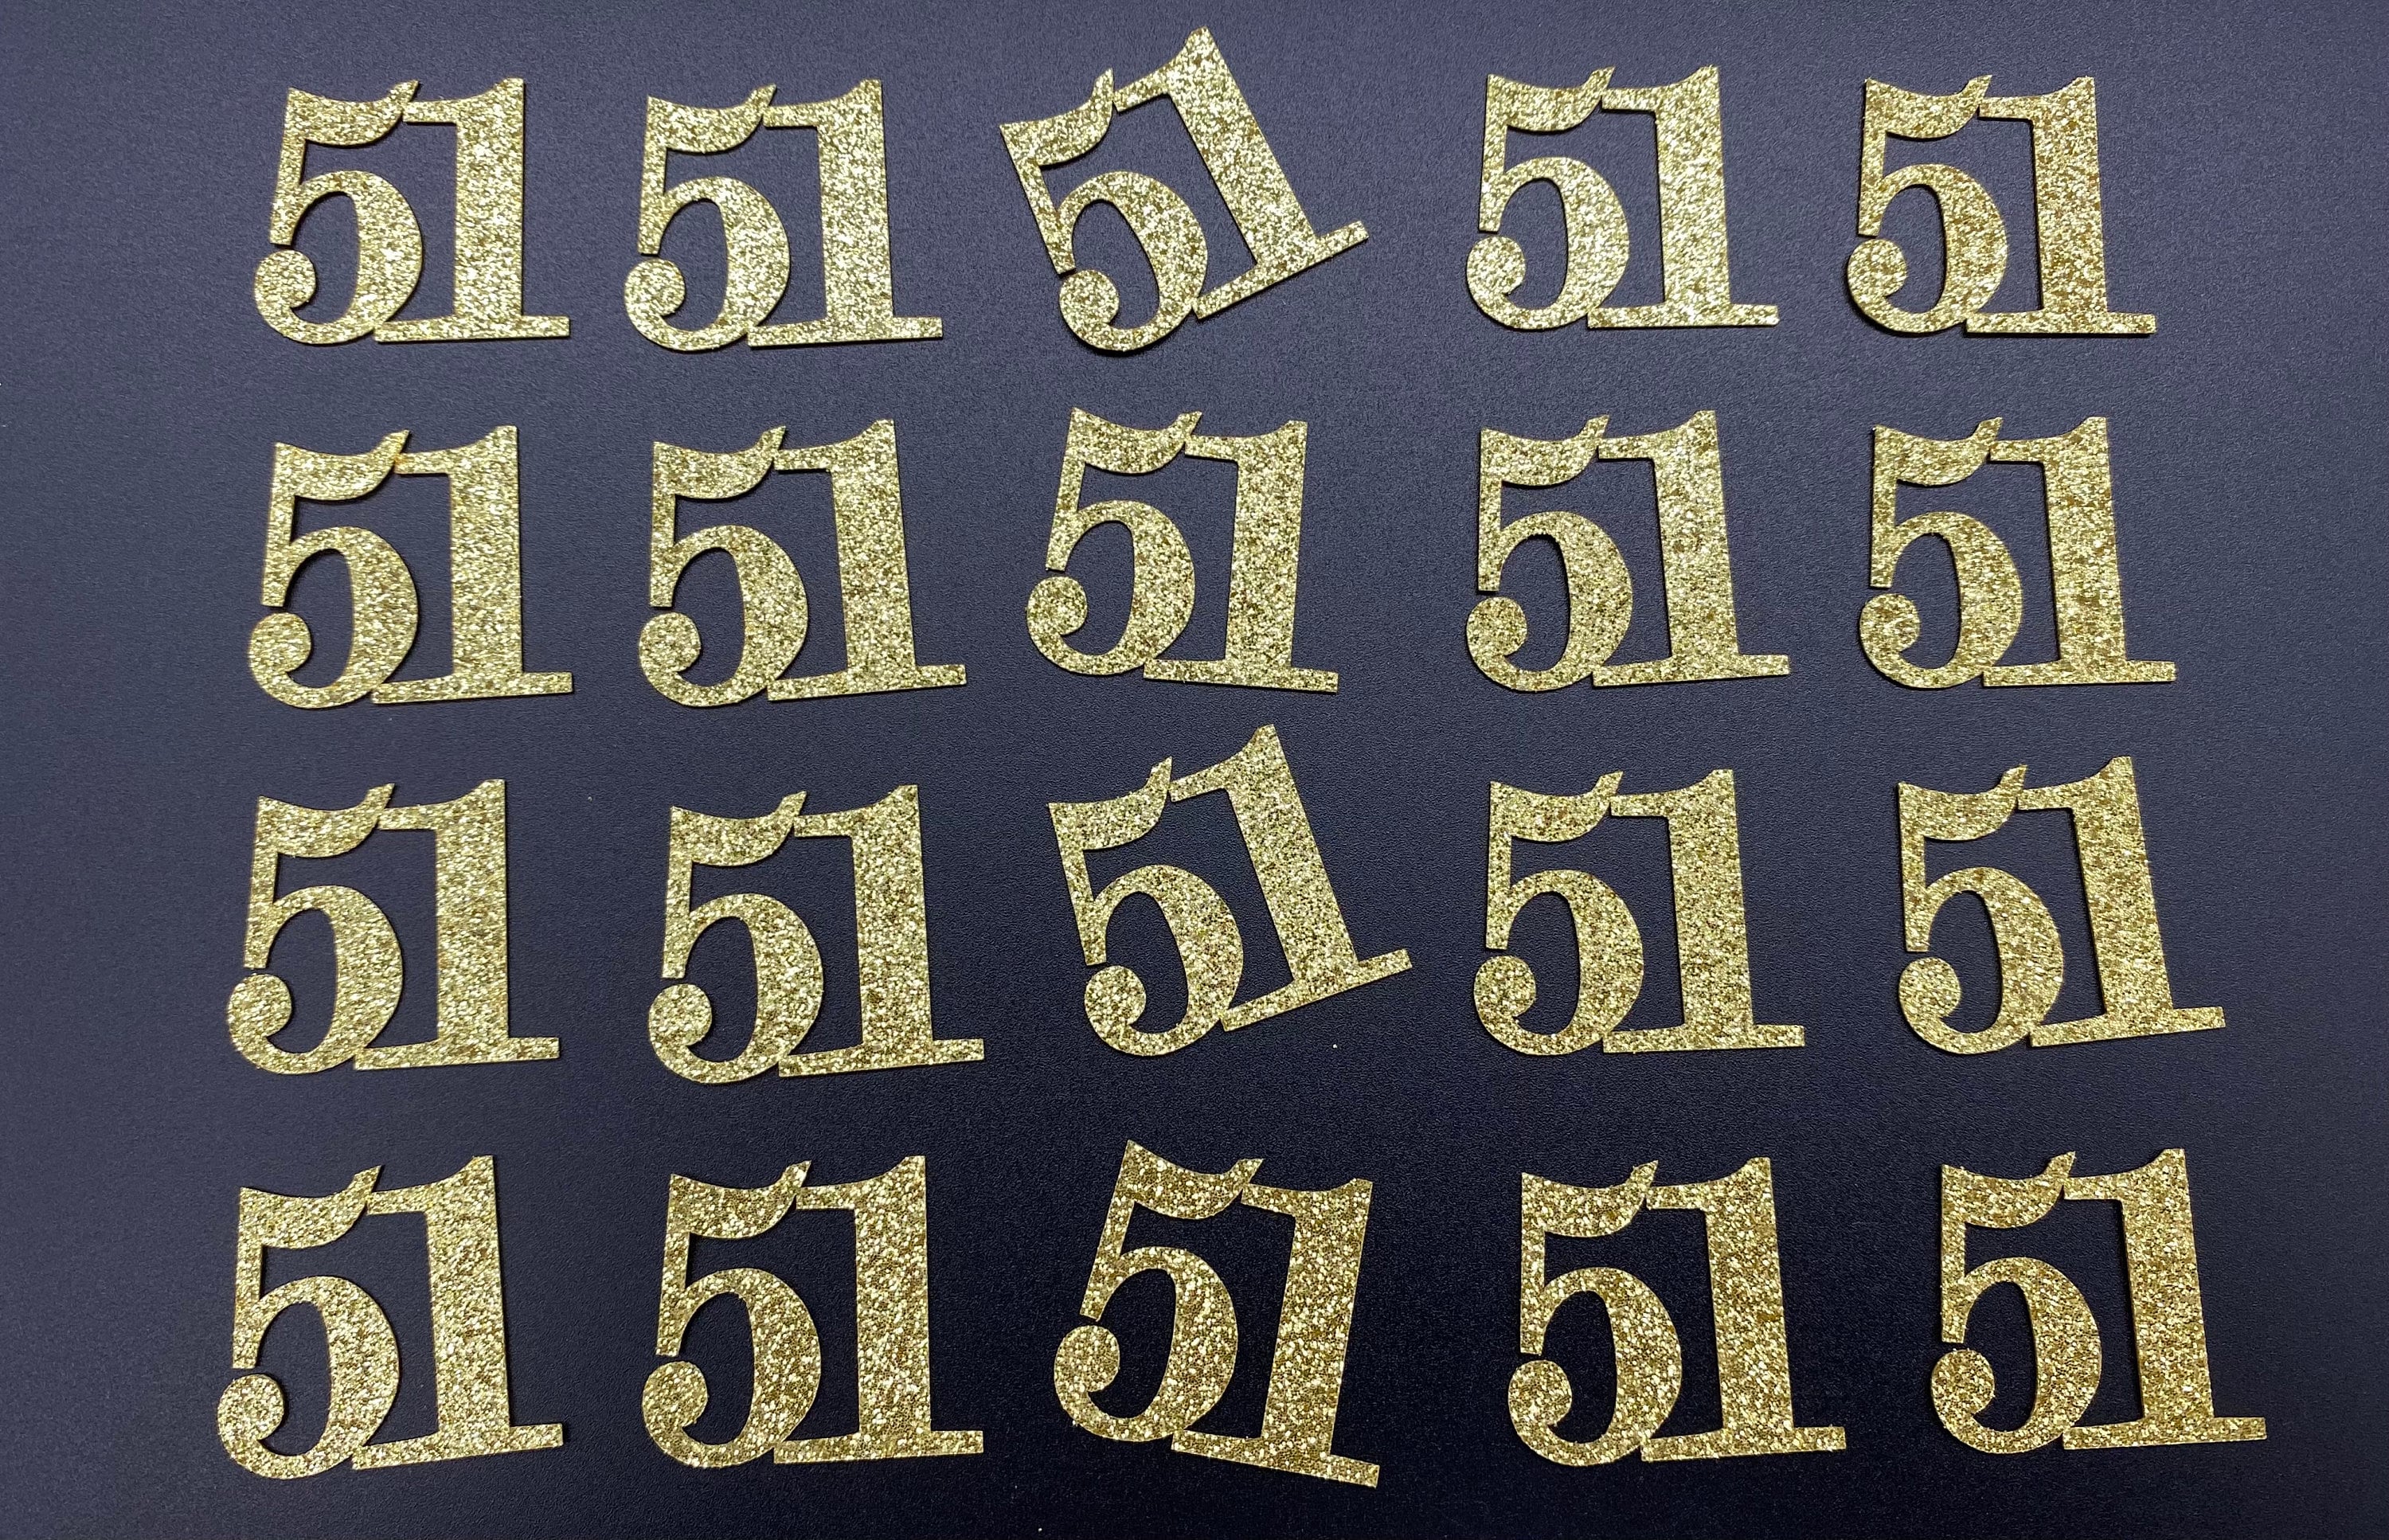 51 51 51 51 51
51 51 51 51 51
51 51 51 51 51
51 51 51 51 51